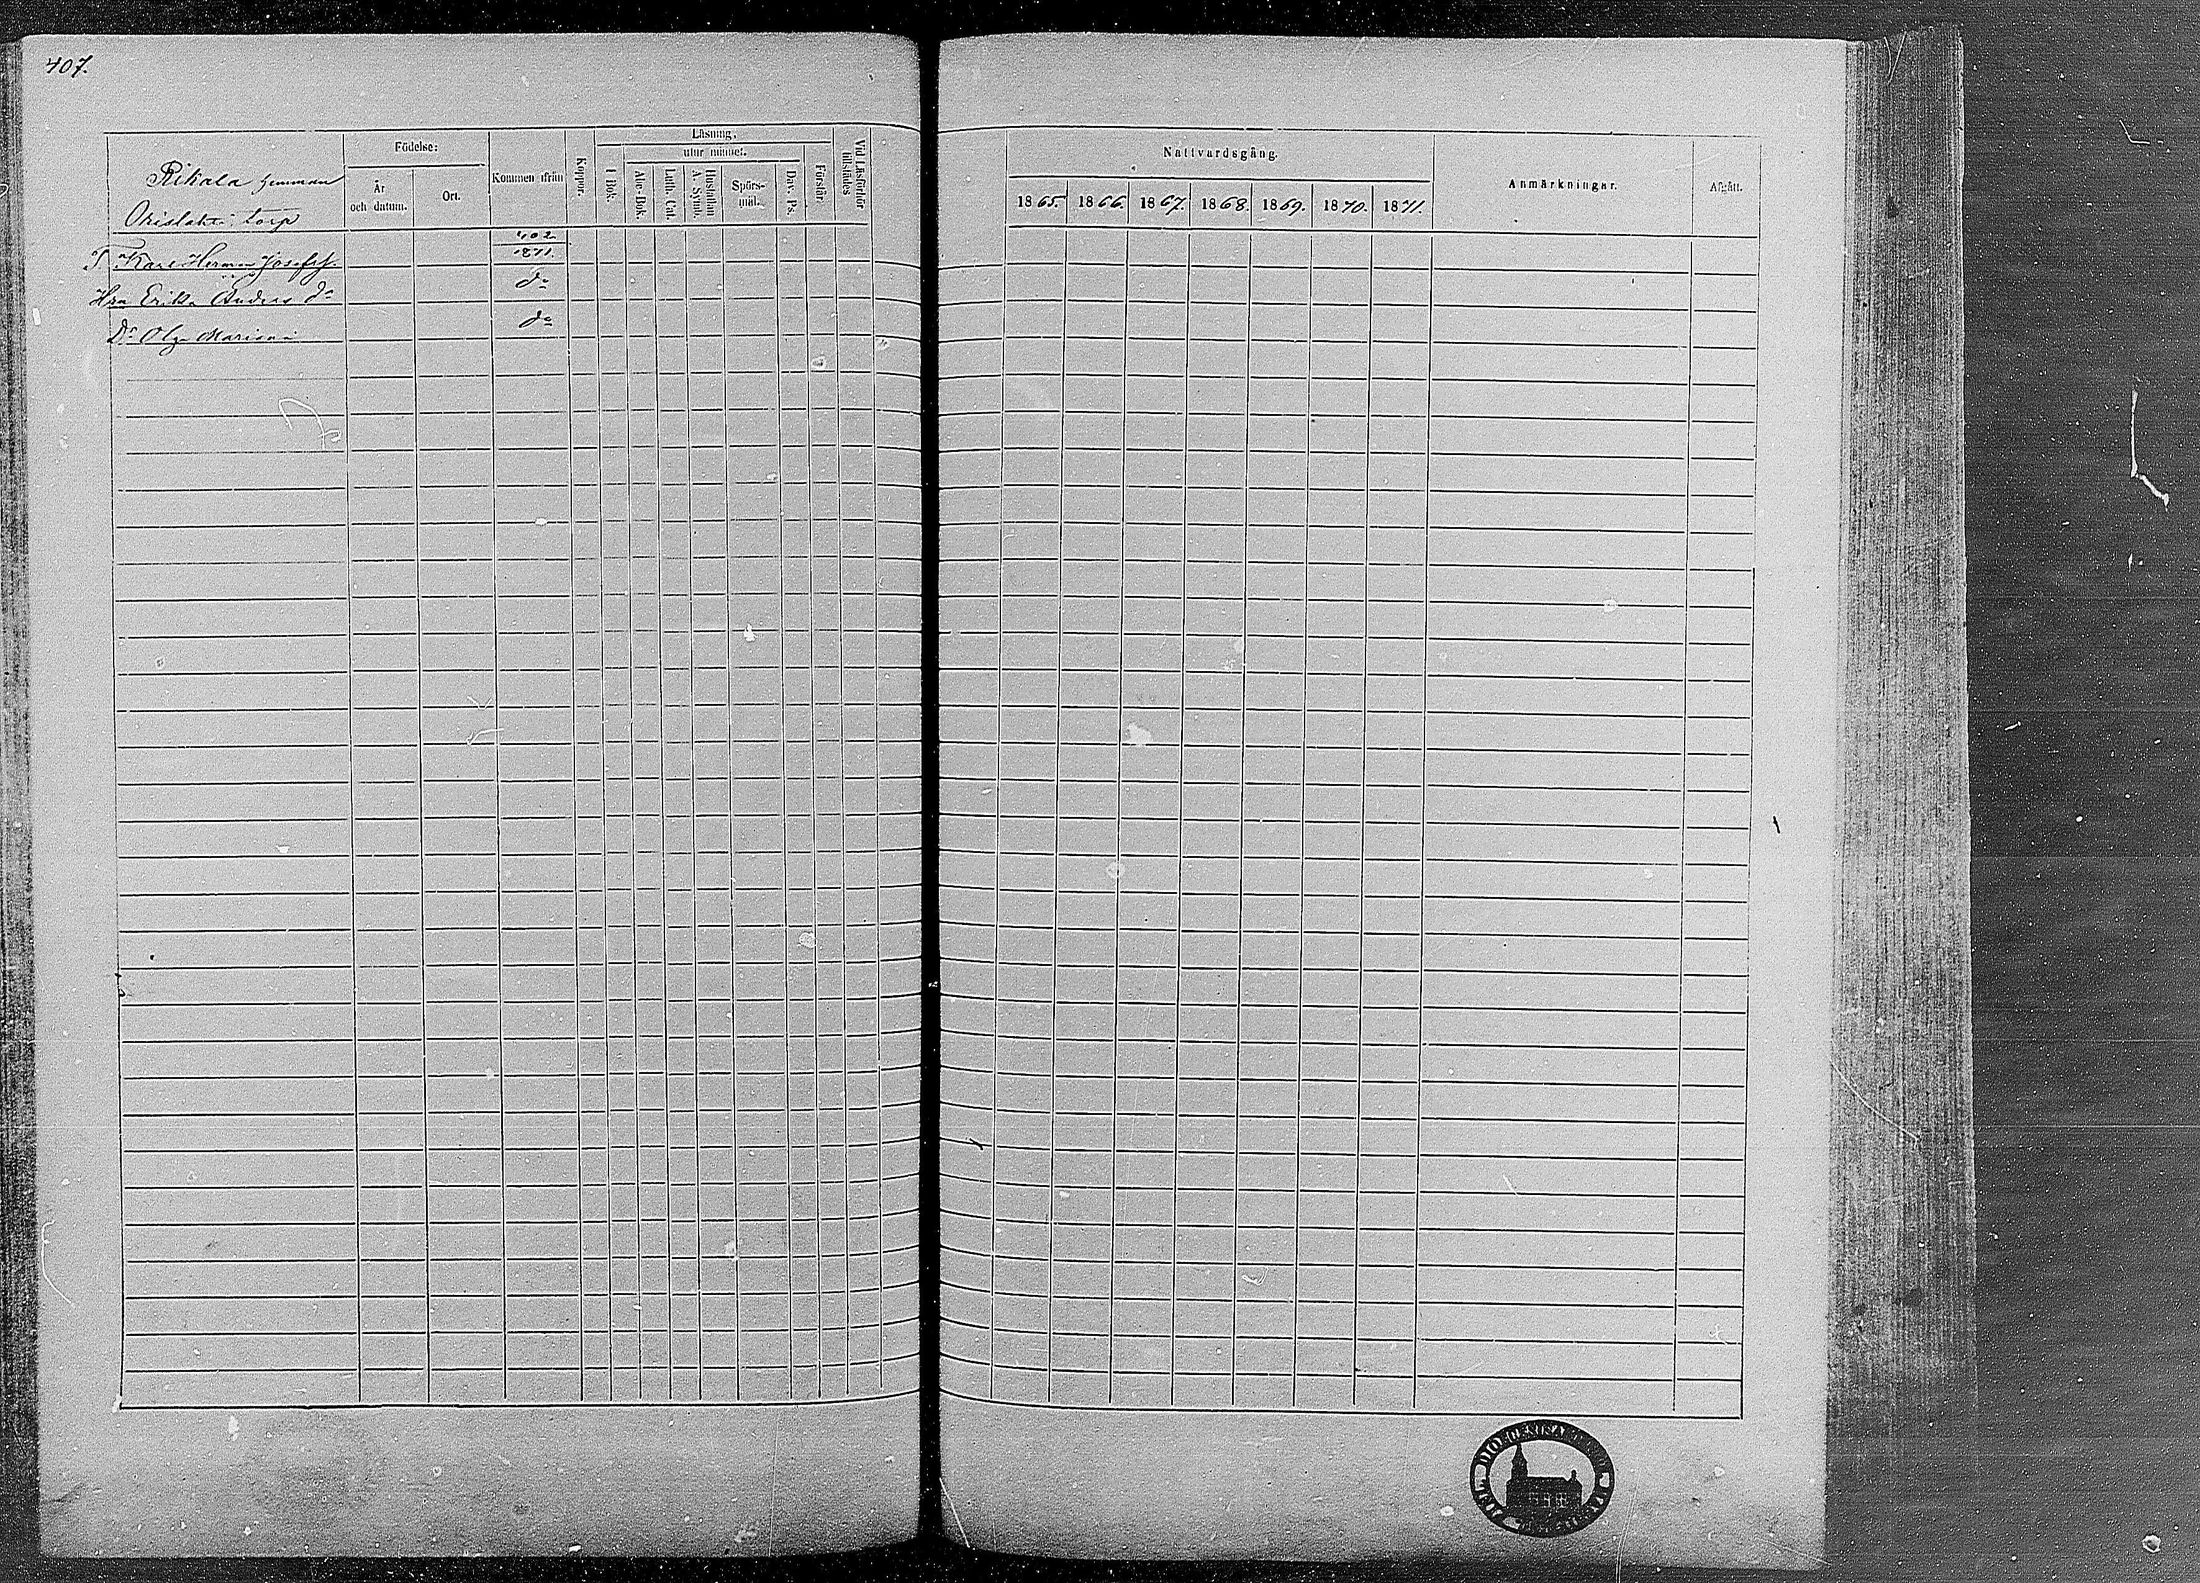 407.
Rikala hemman
torp
Födelse:
År
och datum.
Ort.
Kommen ifrån
Koppor.
Läsning,
utur minnet.
I Bok.
Abc-Bok.
Luth. Cat.
Hustaflan
A. Symb.
Spörs-
mål.
Dav. Ps.
Förstår.
Vid Läsförhör
tillstädes
Nattvardsgång.
1865. 1866. 1867. 1868. 1869. 1870. 1871.
Anmärkningar.
Afgått.
402
1871
T. Karl Herman Josefss.
do
Hru Erika Anders do
do
Dr Olga Maria